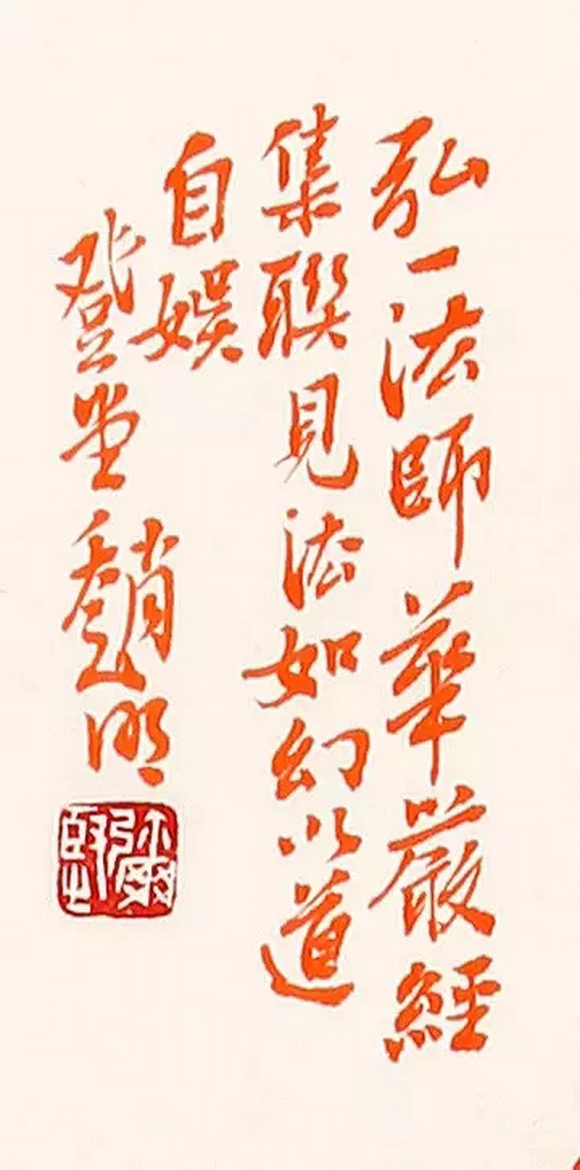 弘一法師華嚴經
集聯見法如幻以道
自娛
登堂趙明